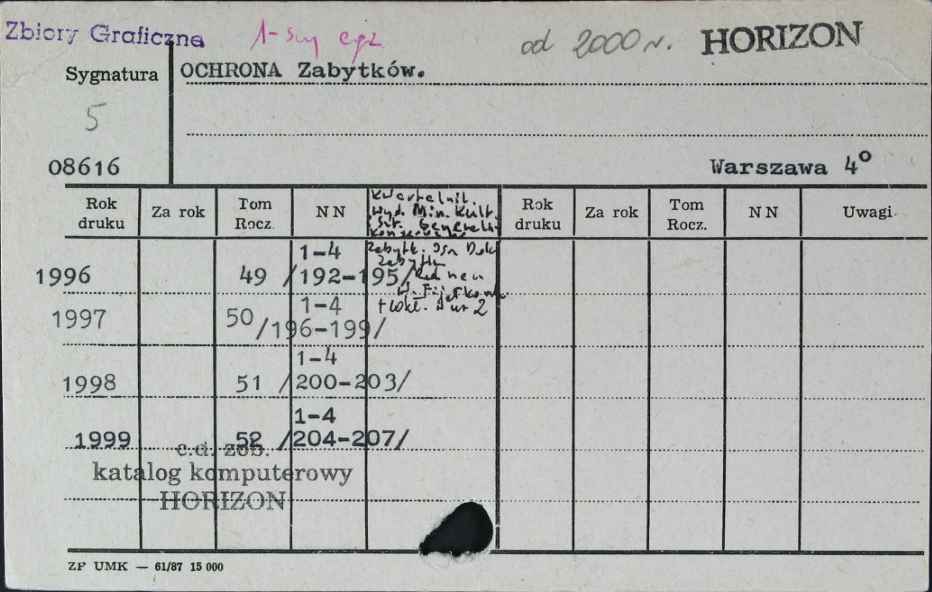 Zbiory Graficzne 1-szy egz od 2000 r. HORIZON
Sygnatura OCHRONA Zabytków.
5
08616 Warszawa 4°
Rok druku Za rok Tom Rocz. NN Kwartalnik. Rok druku Za rok Tom Rocz. NN Uwagi
Wyd. Min. Kult.
1-4
1996 49 /192-195/
1-4
1997 50 /196-199/
1-4
1998 51 /200-203/
1-4
1999 52 /204-207/
c.d. zob.
katalog komputerowy
HORIZON
ZP UMK — 61/87 15 000